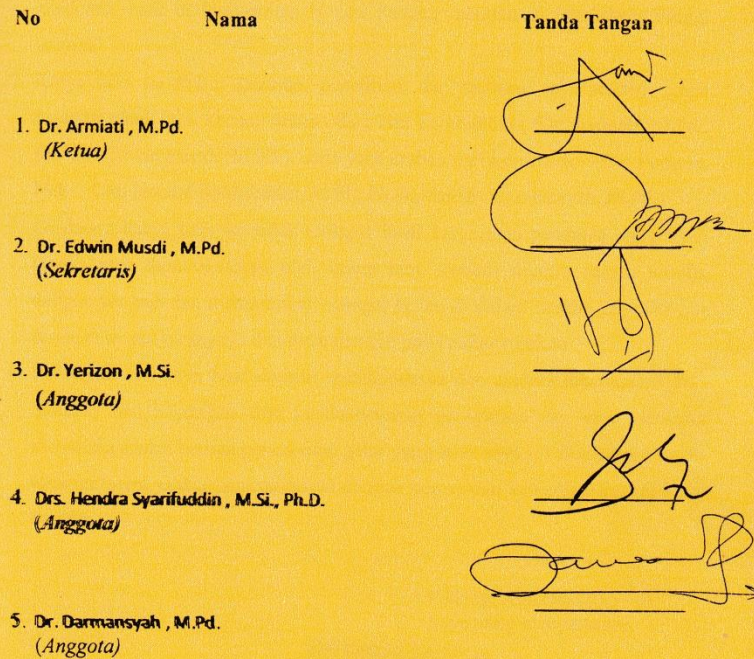 No Nama Tanda Tangan
1. Dr. Armiati , M.Pd.
(Ketua)
2. Dr. Edwin Musdi , M.Pd.
(Sekretaris)
3. Dr. Yerizon , M.Si.
(Anggota)
4. Drs. Hendra Syarifuddin , M.Si., Ph.D.
(Anggota)
5. Dr. Darmansyah , M.Pd.
(Anggota)